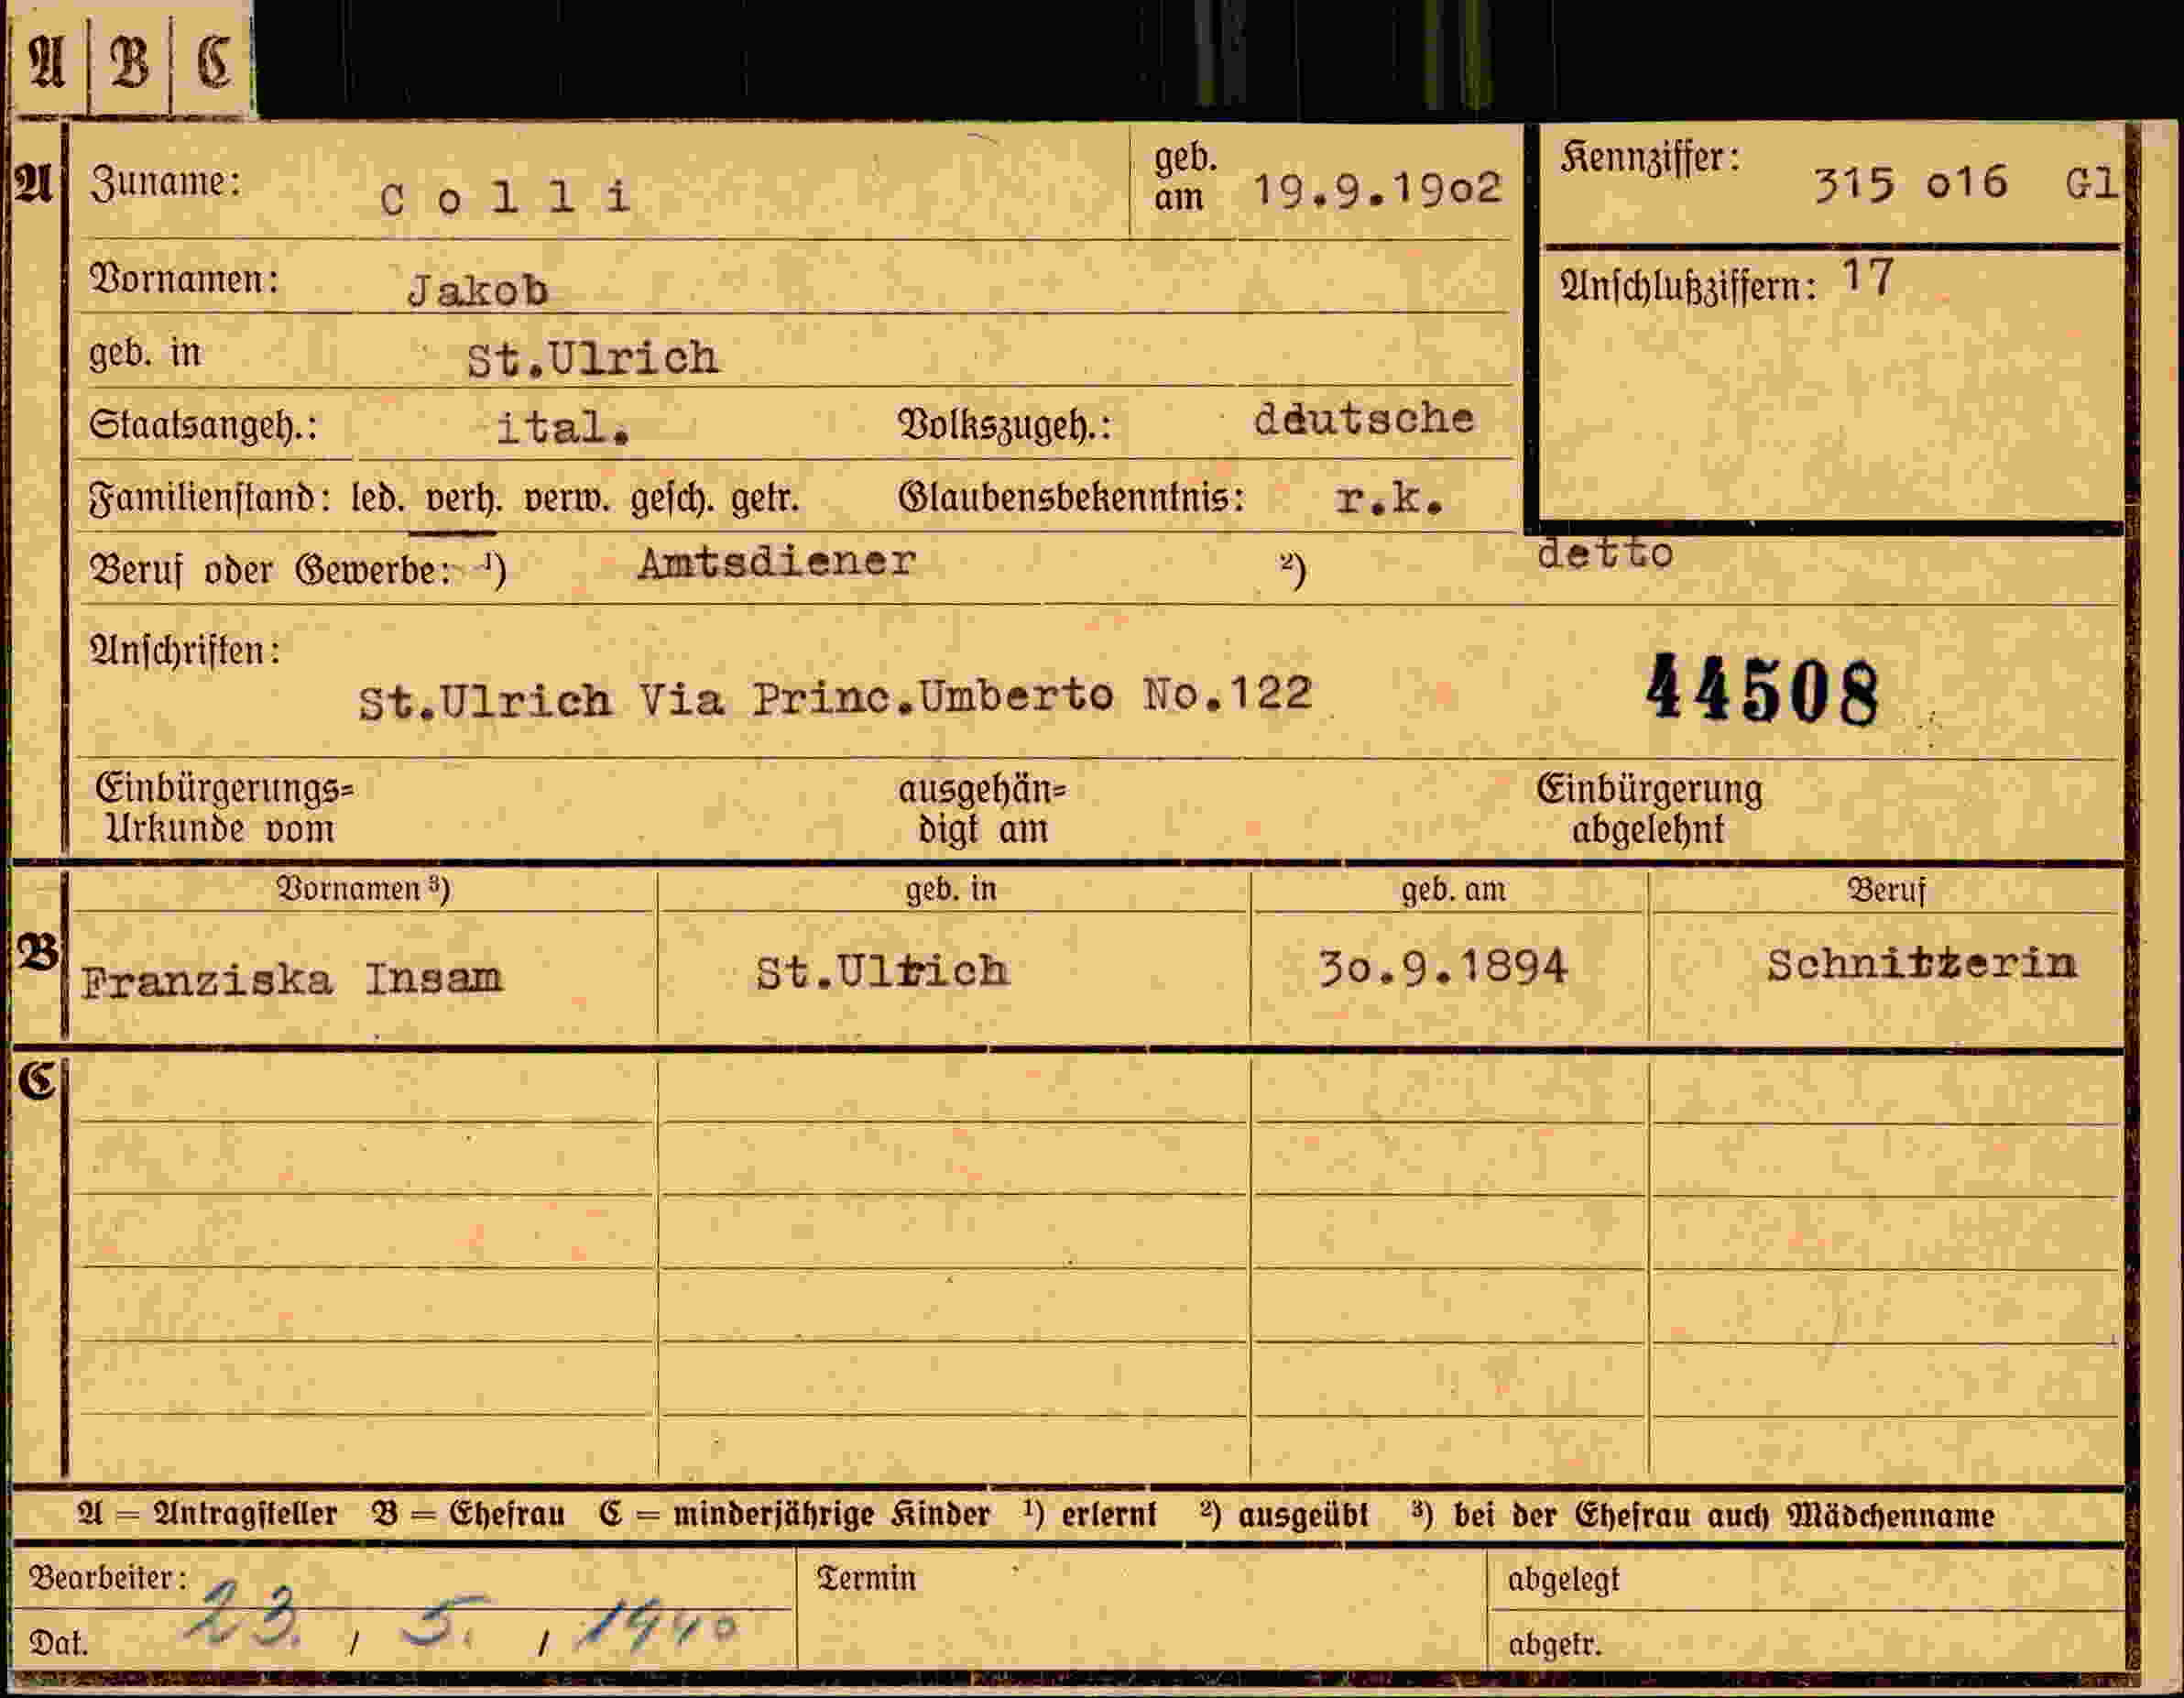 A | B | C
A Zuname: Colli geb. am 19.9.19o2 Kennziffer: 315 o16 Gl
Vornamen: Jakob Anschlußziffern: 17
geb. in St.Ulrich
Staatsangeh.: ital. Volkszugeh.: ddutsche
Familienstand: led. verh. verw. gesch. getr. Glaubensbekenntnis: r.k.
Beruf oder Gewerbe: ¹) Amtsdiener ²) detto
Anschriften:
St.Ulrich Via Princ.Umberto No.122 44508
Einbürgerungs= ausgehän= Einbürgerung
Urkunde vom digt am abgelehnt
Vornamen ³) geb. in geb. am Beruf
B Franziska Insam St.Ulrich 3o.9.1894 Schnitzerin
C
A = Antragsteller B = Ehefrau C = minderjährige Kinder ¹) erlernt ²) ausgeübt ³) bei der Ehefrau auch Mädchenname
Bearbeiter: Termin abgelegt
Dat. 23. / 5. / 1940 abgetr.